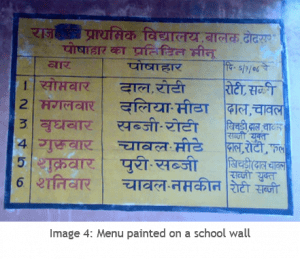 प्राथमिक विद्यालय, बालक,
पोषाहार का प्रतिदिन मीनू
वार पोषाहार
1 सोमवार दाल, रोटी रोटी, सब्जी
2 मंगलवार दलिया-मीठा दाल, चावल
3 बुधवार सब्जी-रोटी खिचड़ी दाल चावल सब्जी युक्त
4 गुरूवार चावल-मीठे दाल, रोटी, फल
5 शुक्रवार पुरी-सब्जी खिचड़ी (दाल चावल सब्जी युक्त
6 शनिवार चावल-नमकीन रोटी सब्जी
Image 4: Menu painted on a school wall